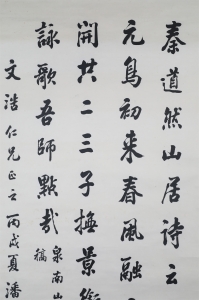 秦道然山居詩云
元鳥初来春風融
開共二三子撫景
詠歌吾師點哉
泉南山
稿
文浩仁兄正之丙戌夏潘